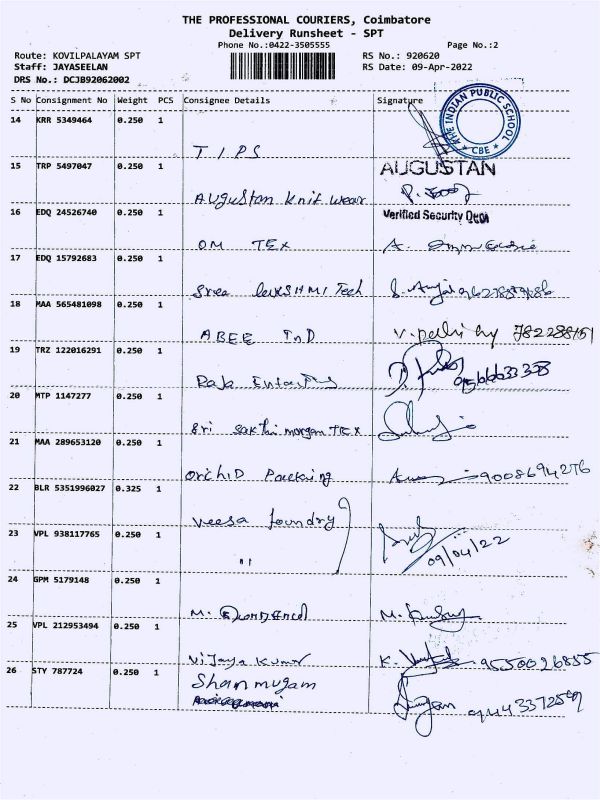 THE PROFESSIONAL COURIERS, Coimbatore
Delivery Runsheet - SPT
Phone No.:0422-3505555
Page No.:2
Route: KOVILPALAYAM SPT
RS No.: 920620
Staff: JAYASEELAN
RS Date: 09-Apr-2022
DRS No.: DCJB92062002
S No Consignment No Weight PCS Consignee Details Signature
THE INDIAN PUBLIC SCHOOL
★ CBE ★
14 KRR 5349464 0.250 1
TIPS
15 TRP 5497047 0.250 1
AUGUSTAN
Augustan knit wear
16 EDQ 24526740 0.250 1
Verified Security Dept
OM TEX
A.
17 EDQ 15792683 0.250 1
Sree Tech
18 MAA 565481098 0.250 1
ABEE InD
19 TRZ 122016291 0.250 1
Raja
20 MTP 1147277 0.250 1
Sri sakthi morgan TEX
21 MAA 289653120 0.250 1
orchiD Packing 9008694276
22 BLR 5351996027 0.325 1
veesa foundry
23 VPL 938117765 0.250 1
"
09/04/22
24 GPM 5179148 0.250 1
M.
M.
25 VPL 212953494 0.250 1
Vijaya Kumar K. 9550026855
26 STY 787724 0.250 1
Shanmugam